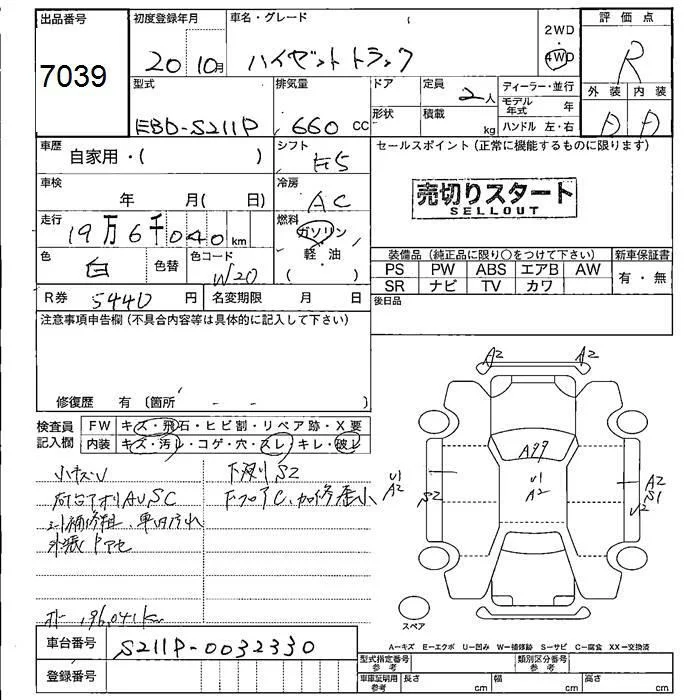 出品番号
7039
初度登録年月
20 10月
車名・グレード
ハイゼットトラック
2WD
・
4WD
評価点
R
外装 内装
A A
型式
EBD-S211P
排気量
660 cc
ドア
形状
定員
2人
積載
kg
ディーラー・並行
モデル年式 年
ハンドル 左・右
車歴
自家用・( )
シフト
F5
セールスポイント (正常に機能するものに限ります)
売切りスタート
SELLOUT
車検
年 月( 日)
冷房
AC
走行
19万6千040km
燃料
ガソリン
軽・油
( )
色
白
色替
色コード
W20
装備品(純正品に限り○をつけて下さい)
新車保証書
PS PW ABS エアB AW
SR ナビ TV カワ
有・無
R券 5440 円
名変期限 月 日
後日品
注意事項申告欄(不具合内容等は具体的に記入して下さい)
修復歴 有 〔箇所 - - 〕
検査員
記入欄
FW キズ・飛石・ヒビ割・リペア跡・X要
内装 キズ・汚レ・コゲ・穴・スレ・キレ・破レ
小キズU
下廻りS2
荷台アオリAUSC
下フロアC、
外装
才 196,041km
A2 A2
A99
U1
A2
U1
A2
S2
A2
S1
U2
スペア
A-キズ E-エクボ U-凹み W-補修跡 S-サビ C-腐食 XX-交換済
車台番号
S211P-0032330
登録番号
型式指定番号
参考
類別区分番号
参考
車庫証明用
参考
長さ cm
幅 cm
高さ cm